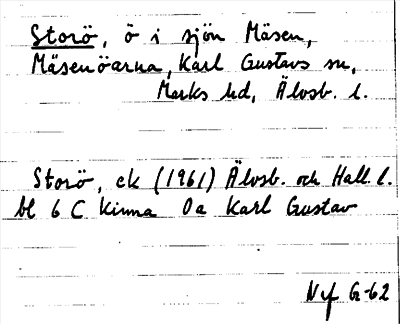 Storö, ö i sjön Mäsen,
Mäsenöarna, Karl Gustavs sn,
Marks hd, Älvsb. l.
Storö, ek (1961) Älvsb. och Hall. l.
bl 6 C Kinna Oa Karl Gustav
Nyf G-62